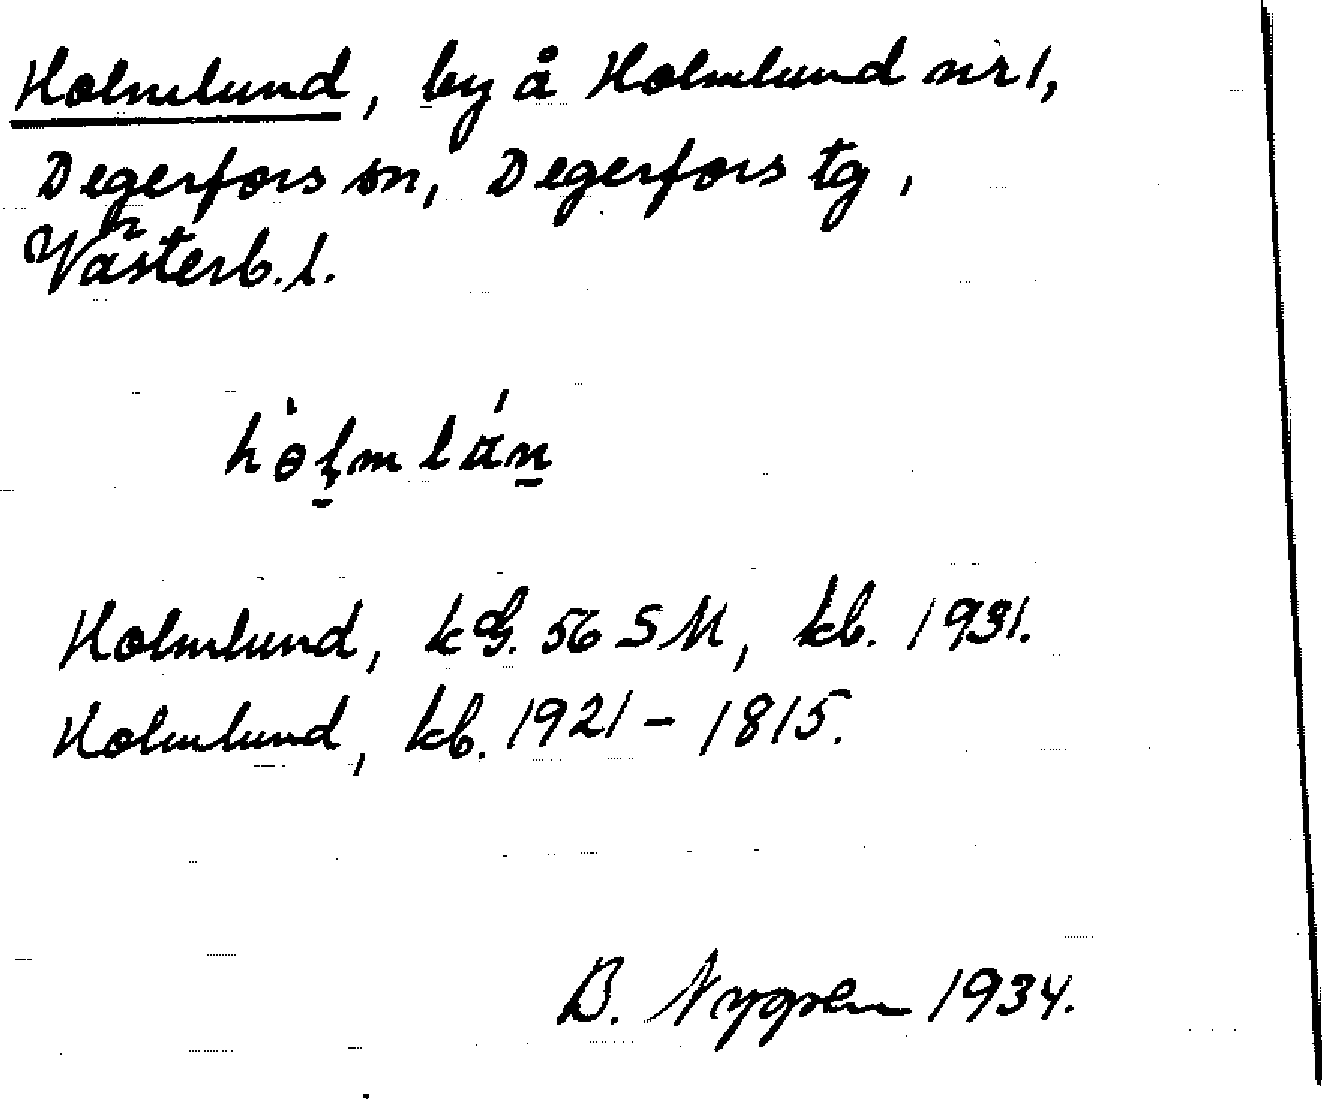 Holmlund, by å Holmlund nr 1,
Degerfors sn, Degerfors tg,
Västerb. l.
Holmlund, kB. 56 SM, kb. 1931.
Holmlund, kb. 1921 - 1815.
B. Nygren 1934.